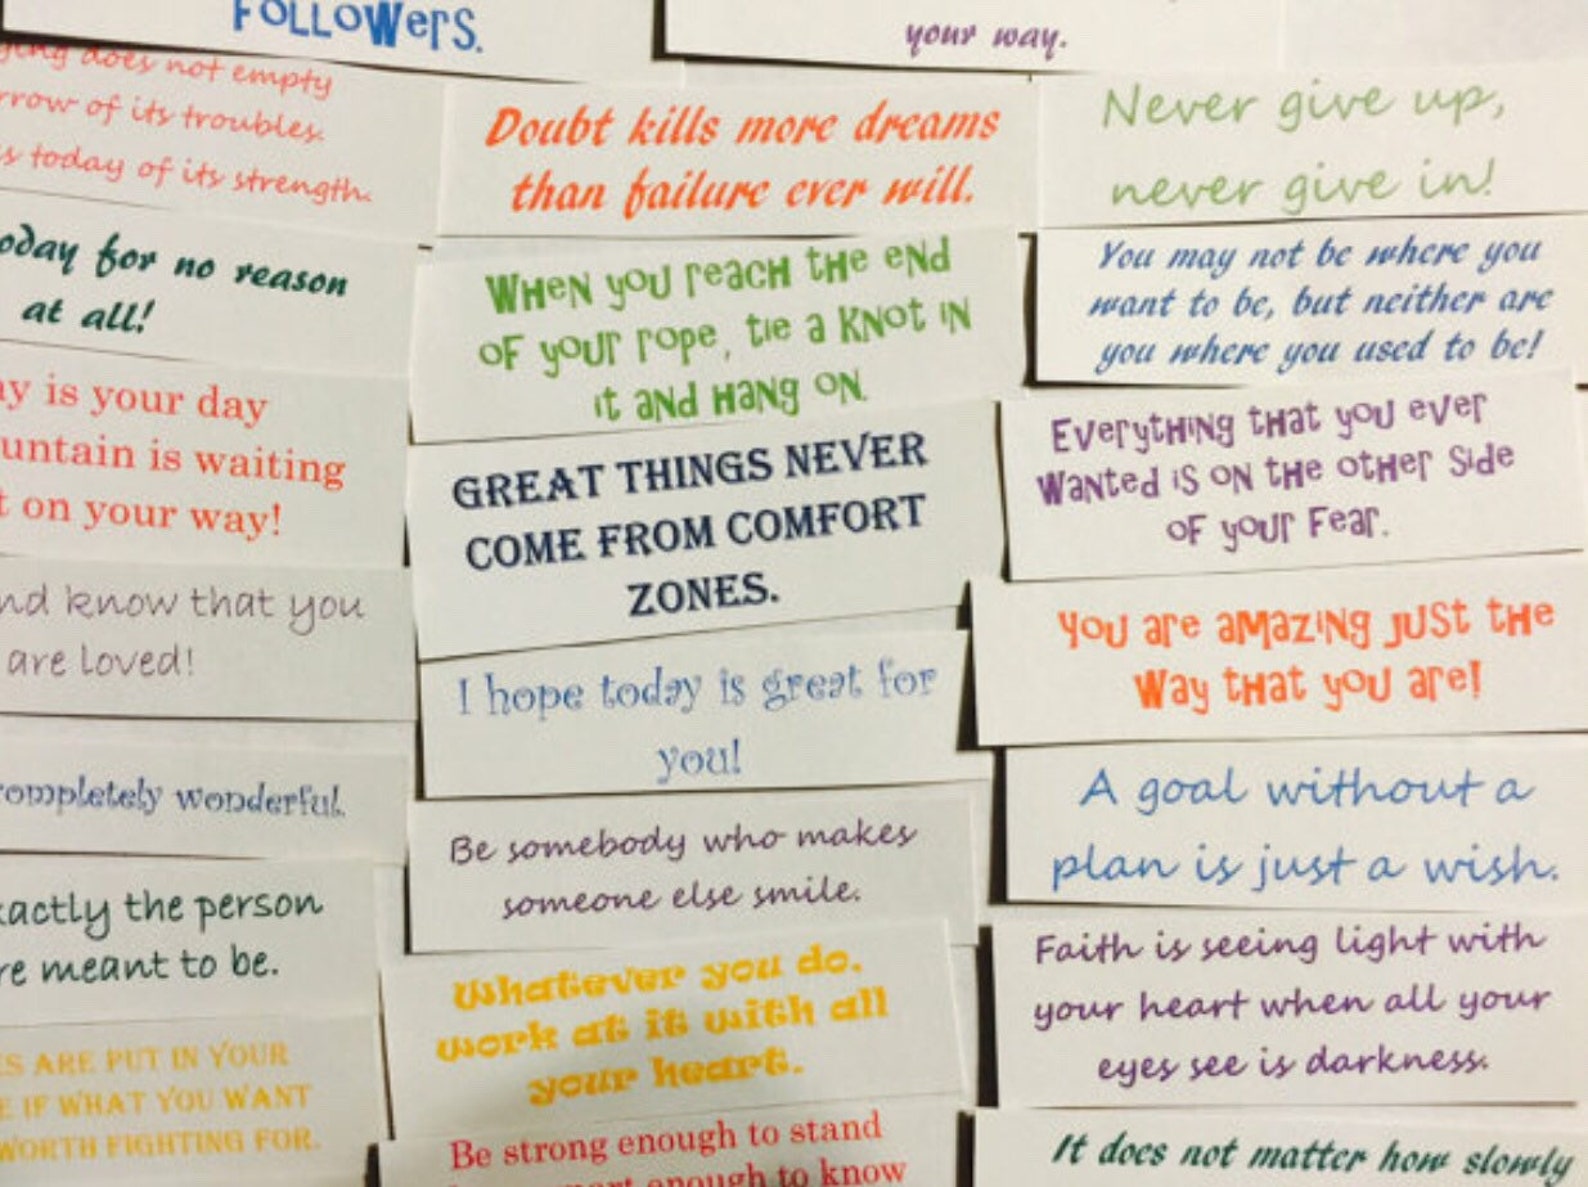 FOLLOWERS.
your way.
does not empty
of its troubles.
today of its strength.
for no reason
at all!
is your day
is waiting
on your way!
know that you
are loved!
wonderful.
the person
meant to be.
ARE PUT IN YOUR
IF WHAT YOU WANT
WORTH FIGHTING FOR.
Doubt kills more dreams
than failure ever will.
When you reach the end
of your rope, tie a knot in
it and hang on.
GREAT THINGS NEVER
COME FROM COMFORT
ZONES.
I hope today is great for
you!
Be somebody who makes
someone else smile.
Whatever you do,
work at it with all
your heart.
Be strong enough to stand
enough to know
Never give up,
never give in!
You may not be where you
want to be, but neither are
you where you used to be!
Everything that you ever
wanted is on the other side
of your fear.
You are amazing just the
way that you are!
A goal without a
plan is just a wish.
Faith is seeing light with
your heart when all your
eyes see is darkness.
It does not matter how slowly